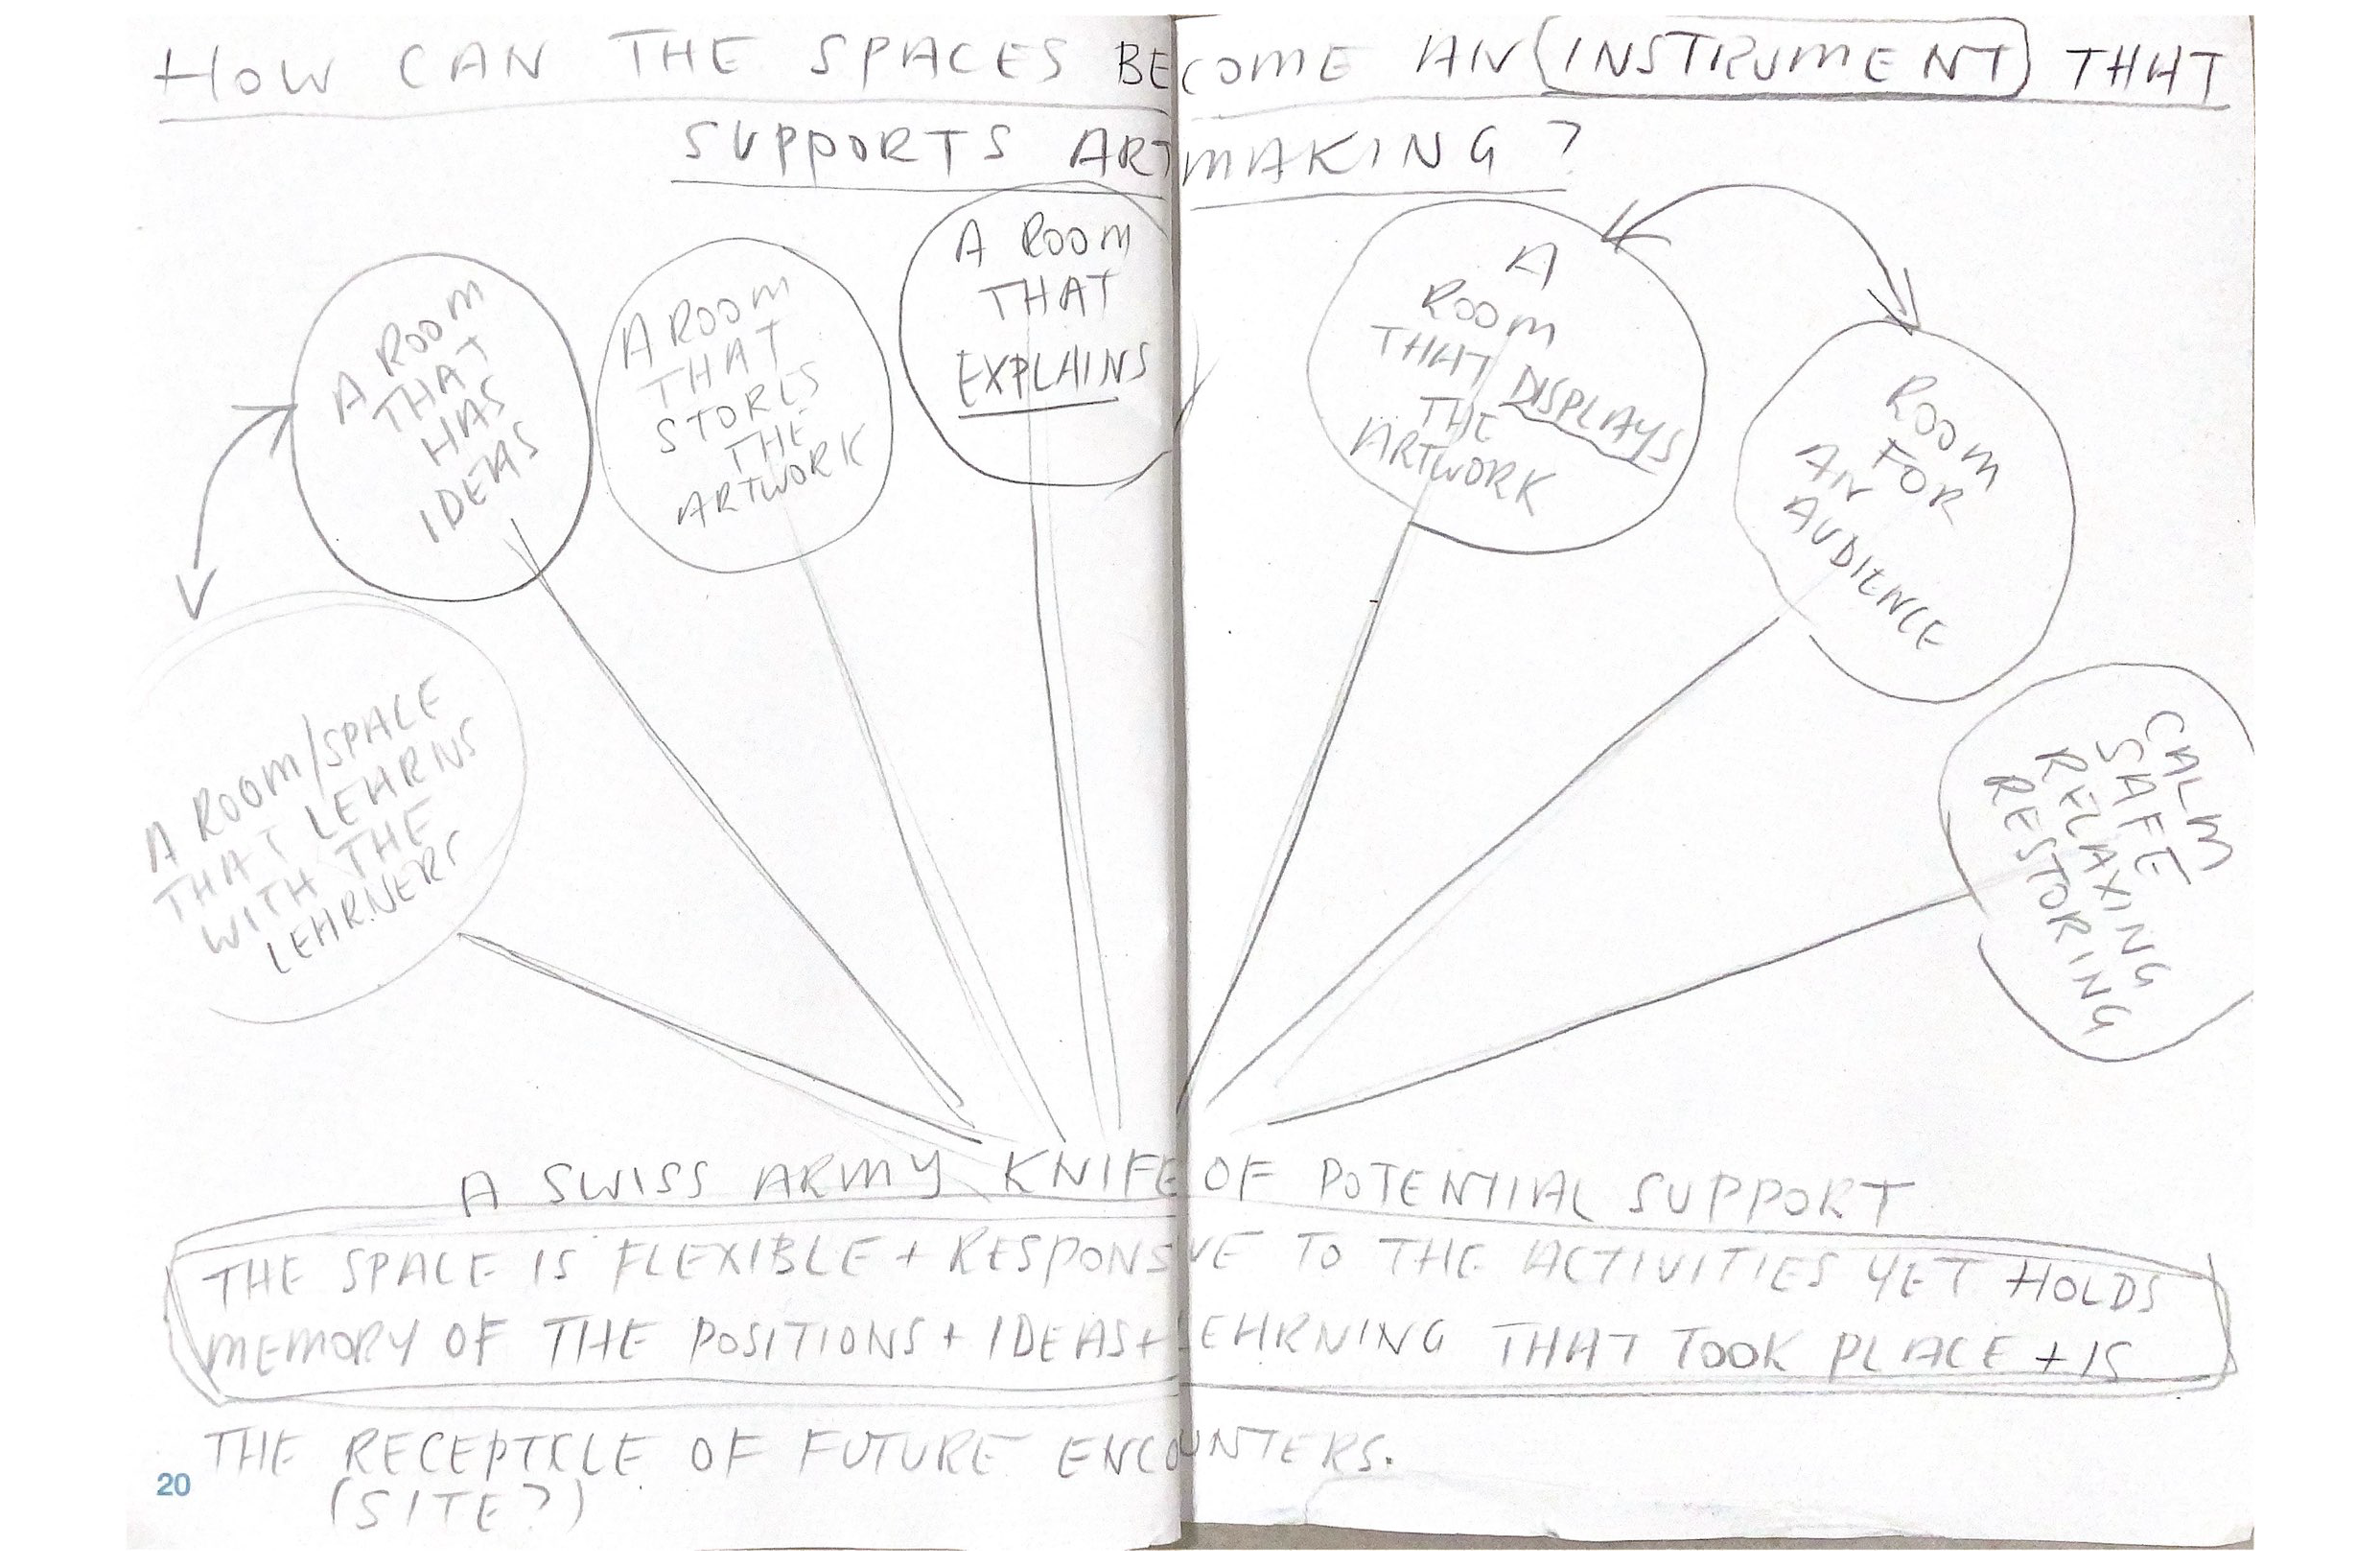 HOW CAN THE SPACES BECOME AN INSTRUMENT THAT
SUPPORTS ARTMAKING?
A ROOM
THAT
HAS
IDEAS
A ROOM
THAT
STORES
THE
ARTWORK
A ROOM
THAT
EXPLAINS
A
ROOM
THAT DISPLAYS
THE
ARTWORK
ROOM
FOR
AN
AUDIENCE
A ROOM/SPACE
THAT LEARNS
WITH THE
LEARNERS
CALM
SAFE
RELAXING
RESTORING
A SWISS ARMY KNIFE OF POTENTIAL SUPPORT
THE SPACE IS FLEXIBLE + RESPONSIVE TO THE ACTIVITIES YET HOLDS
MEMORY OF THE POSITIONS + IDEAS + LEARNING THAT TOOK PLACE + IS
THE RECEPTICLE OF FUTURE ENCOUNTERS.
(SITE?)
20